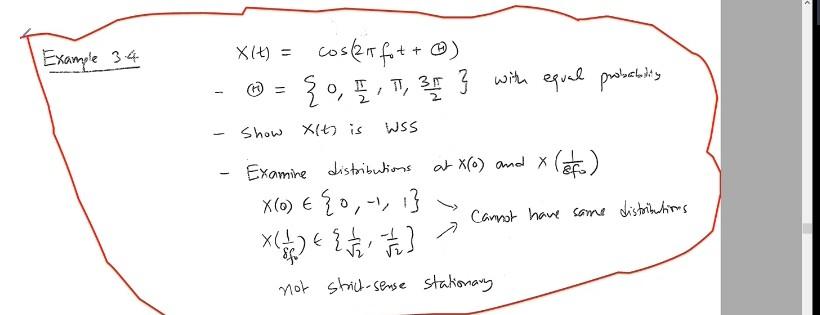 Example 3.4
X(t) = cos(2π f₀t + Θ)
- Θ = { 0, π/2, π, 3π/2 } with equal probability
- Show X(t) is WSS
- Examine distributions at X(0) and X(1/8f₀)
X(0) ∈ {0, -1, 1}
Cannot have same distributions
X(1/8f₀) ∈ {1/√2, -1/√2}
not strict-sense stationary